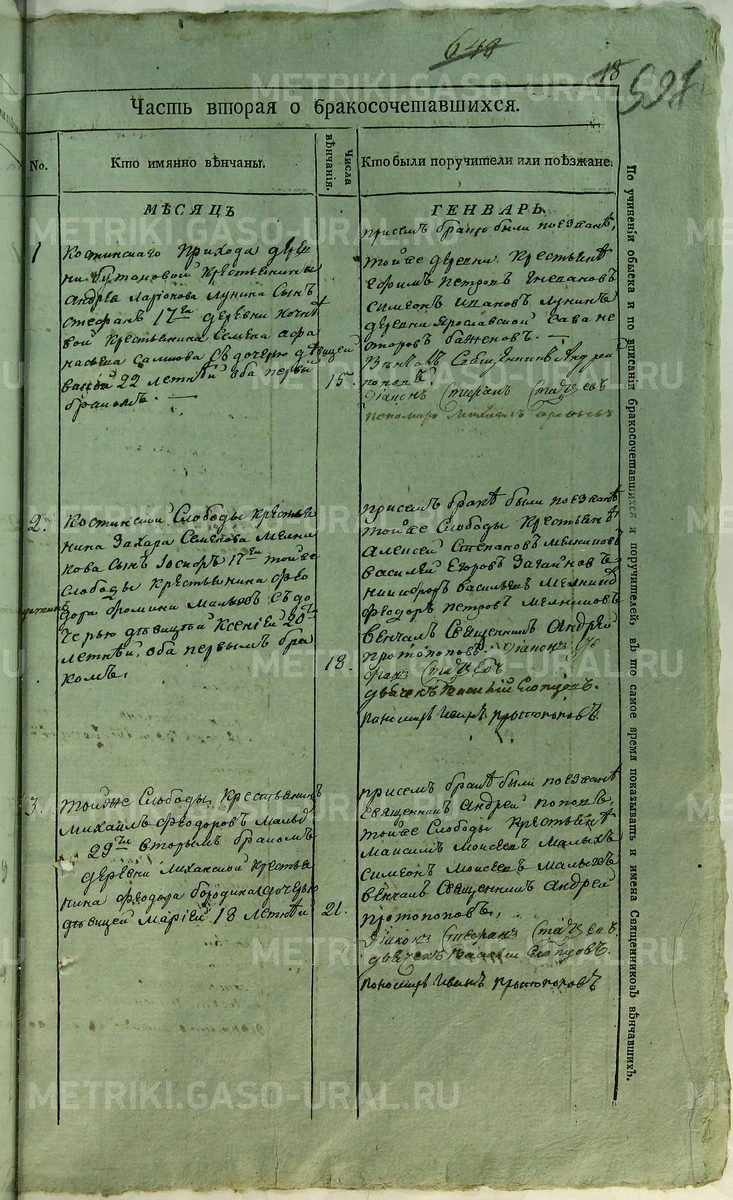 648
18
591
Часть вторая о бракосочетавшихся.
No.
Кто имянно вѣнчаны.
Числа вѣнчанія.
Кто были поручители или поѣзжане.
МѢСЯЦЪ
ГЕНВАРЬ
1
Костинскаго прихода дерев
ни Бутаковой крестьянина
Андрея Ларіонова Лунина сынъ
Стефанъ 17ти деревни
вой крестьянина Семена Афа
насьева съ дочерью дѣвицей
22 летней оба первы
бракомъ.
15.
при семъ браке были поезжанѣ
той же деревни крестьянѣ
Ефимъ Петровъ
Симеонъ Ивановъ Лунинъ
деревни Ярославской Сава Не
сторовъ Баженовъ.
Венчалъ Священникъ Андрей
Поповъ
Диаконъ Стефанъ Стацевъ
пономарь Михаилъ
2.
Костинской Слободы крестья
нина Захара Семенова Мелни
кова сынъ Іосифъ 17ти той же
Слободы крестьянина Фео
дора Фомина Малыхъ съ до
черью дѣвицѣй Ксеніей 20ти
летнѣй, оба первымъ бра
комъ.
18.
при семъ бракѣ были поезжанѣ
той же Слободы крестьянѣ
Алексей Степановъ Мелниковъ
Василей Егоровъ Загайновъ
Никифоръ Васильевъ
Феодоръ Петровъ Мелниковъ
венчалъ Священникъ Андрей
Протопоповъ. Диаконъ Сте
фанъ Стацевъ
дьячекъ
пономарь Иванъ Протопоповъ
3.
Той же Слободы, крестьянинъ
Михаилъ Феодоровъ Малых
29ти вторымъ бракомъ
деревни крестья
нина Феодора Бородина съ дочерью
дѣвицей Маріей 18 летнѣй
21.
при семъ бракѣ были поезжанѣ
Священникъ Андрей Поповъ,
той же Слободы крестьянѣ
Максимъ Моисеевъ Малыхъ
Симеонъ Моисеевъ Малыхъ
венчалъ Священникъ Андрей
Протопоповъ,
Диаконъ Стефанъ Стацевъ
дьячекъ
пономарь Иванъ Протопоповъ
По учиненіи обыска и по вписаніи бракосочетавшихся и поручителей, въ то самое время показывать и имена Священниковъ вѣнчавшихъ.
METRIKI.GASO-URAL.RU